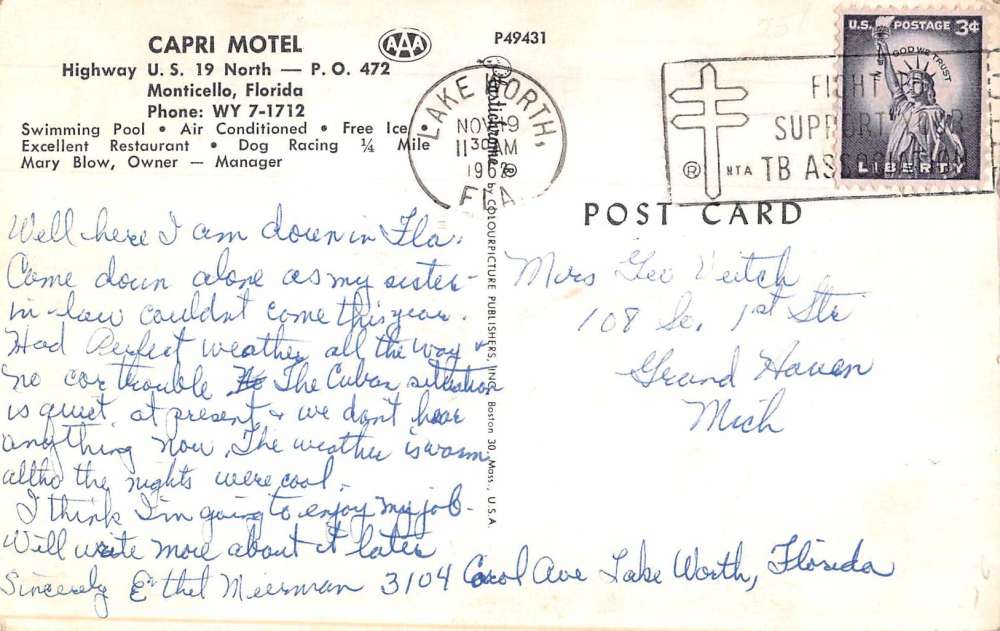 CAPRI MOTEL
Highway U. S. 19 North — P. O. 472
Monticello, Florida
Phone: WY 7-1712
Swimming Pool • Air Conditioned • Free Ice •
Excellent Restaurant • Dog Racing ¼ Mile
Mary Blow, Owner — Manager
AAA
P49431
Plastichrome ® by COLOURPICTURE PUBLISHERS, INC., Boston 30, Mass., U.S.A.
LAKE WORTH,
NOV 9
11 30 AM
1962
FLA
FIGHT TB
SUPPORT YOUR
® NTA TB ASSOCIATION
U.S. POSTAGE 3¢
IN GOD WE TRUST
LIBERTY
POST CARD
Well here I am down in Fla.
Came down alone as my sister-
in-law couldnt come this year.
Had Perfect weather all the way &
no car trouble. The Cuban situation
is quiet at present & we don't hear
anything now. The weather is warm
altho the nights were cool.
I think I'm going to enjoy my job.
Will write more about it later
Sincerely Ethel Meerman 3104 Carol Ave Lake Worth, Florida
Mrs Geo Veitch
108 So. 1st Str
Grand Haven
Mich